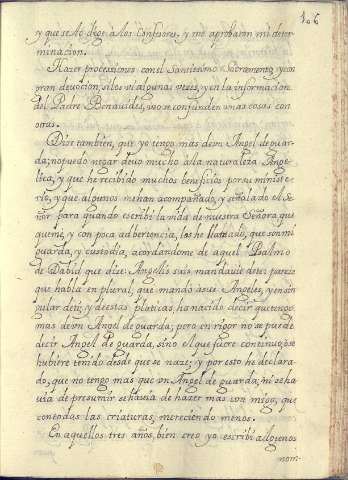 106
y que se lo dixe a los Confesores, y me aprobaron mi deter-
minacion.
Hazer processiones con el Santissimo Sacramento, y con
gran devocion, si los vi algunas vezes, y en la informacion
del Padre Benavides, no se confunden unas cosas con
otras.
Dize tambien, que yo tengo mas de un Angel de guar-
da; no puedo negar devo mucho a la naturaleza Ange-
lica, y que he recibido muchos beneficios por su ministe-
rio, y que algunos me han acompañado, y señalado el Se-
ñor para quando escribi la vida de nuestra Señora que
quemè, y con poca adbertencia, los he llamado, que son mi
guarda, y custodia, acordandome de aquel Psalmo
de David que dize Angelis suis mandavit de te; pareze
que habla en plural, que mandò a sus Angeles, y en sin-
gular de ti, y de estas platicas, ha nacido decir que tengo
mas de un Angel de guarda; pero en rigor no se puede
decir Angel de guarda, sino el que fuere continuo, y se
hubiere tenido desde que se naze; y por esto he declara-
do, que no tengo mas que un Angel de guarda; ni se ha-
via de presumir se havia de hazer mas conmigo, que
con todas las criaturas, mereciendo menos.
En aquellos tres años, bien creo yo escribi a algunos
nom-